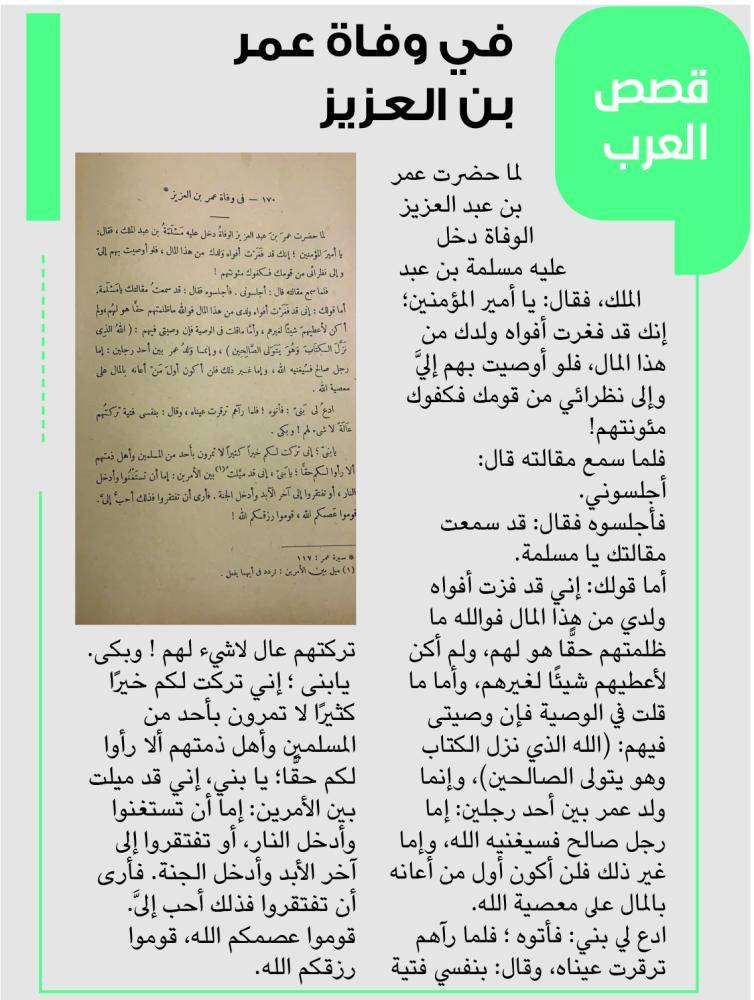 قصص
العرب
في وفاة عمر
بن العزيز
لما حضرت عمر
بن عبد العزيز
الوفاة دخل
عليه مسلمة بن عبد
الملك، فقال: يا أمير المؤمنين؛
إنك قد فغرت أفواه ولدك من
هذا المال، فلو أوصيت بهم إليَّ
وإلى نظرائي من قومك فكفوك
مئونتهم!
فلما سمع مقالته قال:
أجلسوني.
فأجلسوه فقال: قد سمعت
مقالتك يا مسلمة.
أما قولك: إني قد فزت أفواه
ولدي من هذا المال فوالله ما
ظلمتهم حقًّا هو لهم، ولم أكن
لأعطيهم شيئًا لغيرهم، وأما ما
قلت في الوصية فإن وصيتى
فيهم: (الله الذي نزل الكتاب
وهو يتولى الصالحين)، وإنما
ولد عمر بين أحد رجلين: إما
رجل صالح فسيغنيه الله، وإما
غير ذلك فلن أكون أول من أعانه
بالمال على معصية الله.
ادع لي بني: فأتوه ؛ فلما رآهم
ترقرت عيناه، وقال: بنفسي فتية
١٧٠ – فى وفاة عمر بن العزيز*
لما حضرت عمرَ بن عبد العزيز الوفاةُ دخل عليه مَسْلَمَةُ بن عبد الملك، فقال:
يا أميرَ المؤمنين؛ إنك قد فَغَرْت أفواه وَلدك من هذا المال، فلو أوصيت بهم إلىّ
و إلى نظرائى من قومك فكفوك مئونتهم !
فلما سمع مقالته قال: أجلسونى. فأجلسوه فقال: قد سمعتُ مقالتك يامَسْلمة.
أما قولك: إنى قد فَغَرْت أفواه ولدى من هذا المال فوالله ماظلمتهم حقًّا هو لهم، ولم
أكن لأعطيهم شيئًا لغيرهم، وأمّا ماقلت فى الوصية فإن وصيتى فيهم: (اللهُ الذِى
نَزَّلَ الكتابَ وَهُوَ يَتَوَلَى الصَّالِحِين)، وإنمـا وَلدُ عمر بين أحد رجلين: إما
رجل صالح فسيُغنيه الله، وإما غير ذلك فلن أكون أولَ مَنْ أعانه بالمال على
معصية الله.
ادعُ لى بَنىَّ: فأتوه؛ فلما رآهم ترقرت عيناه، وقال: بنفسى فتية تركتُهم
عَالَةً لا شىء لهم ! وبكى.
يابنىّ؛ إنى تركت لكم خيراً كثيراً لا تمرون بأحد من المسلمين وأهل ذمتهم
ألا رأوا لكم حقا؛ يا بَنىّ، إنى قد مَيَّلت(١) بين الأمرين: إما أن تستغْنُوا وأدخل
النار، أو تفتقروا إلى آخر الأبد وأدخل الجنة. فأرى أن تفتقروا فذلك أحبُّ إلىَّ.
قوموا عَصمكم الله، قوموا رزقكم الله !
* سيرة عمر: ١١٧
(١) ميل بين الأمرين: تردد فى أيهما يفعل.
تركتهم عال لاشيء لهم ! وبكى.
يابنى ؛ إني تركت لكم خيرًا
كثيرًا لا تمرون بأحد من
المسلمين وأهل ذمتهم ألا رأوا
لكم حقًّا؛ يا بني، إني قد ميلت
بين الأمرين: إما أن تستغنوا
وأدخل النار، أو تفتقروا إلى
آخر الأبد وأدخل الجنة. فأرى
أن تفتقروا فذلك أحب إليَّ.
قوموا عصمكم الله، قوموا
رزقكم الله.